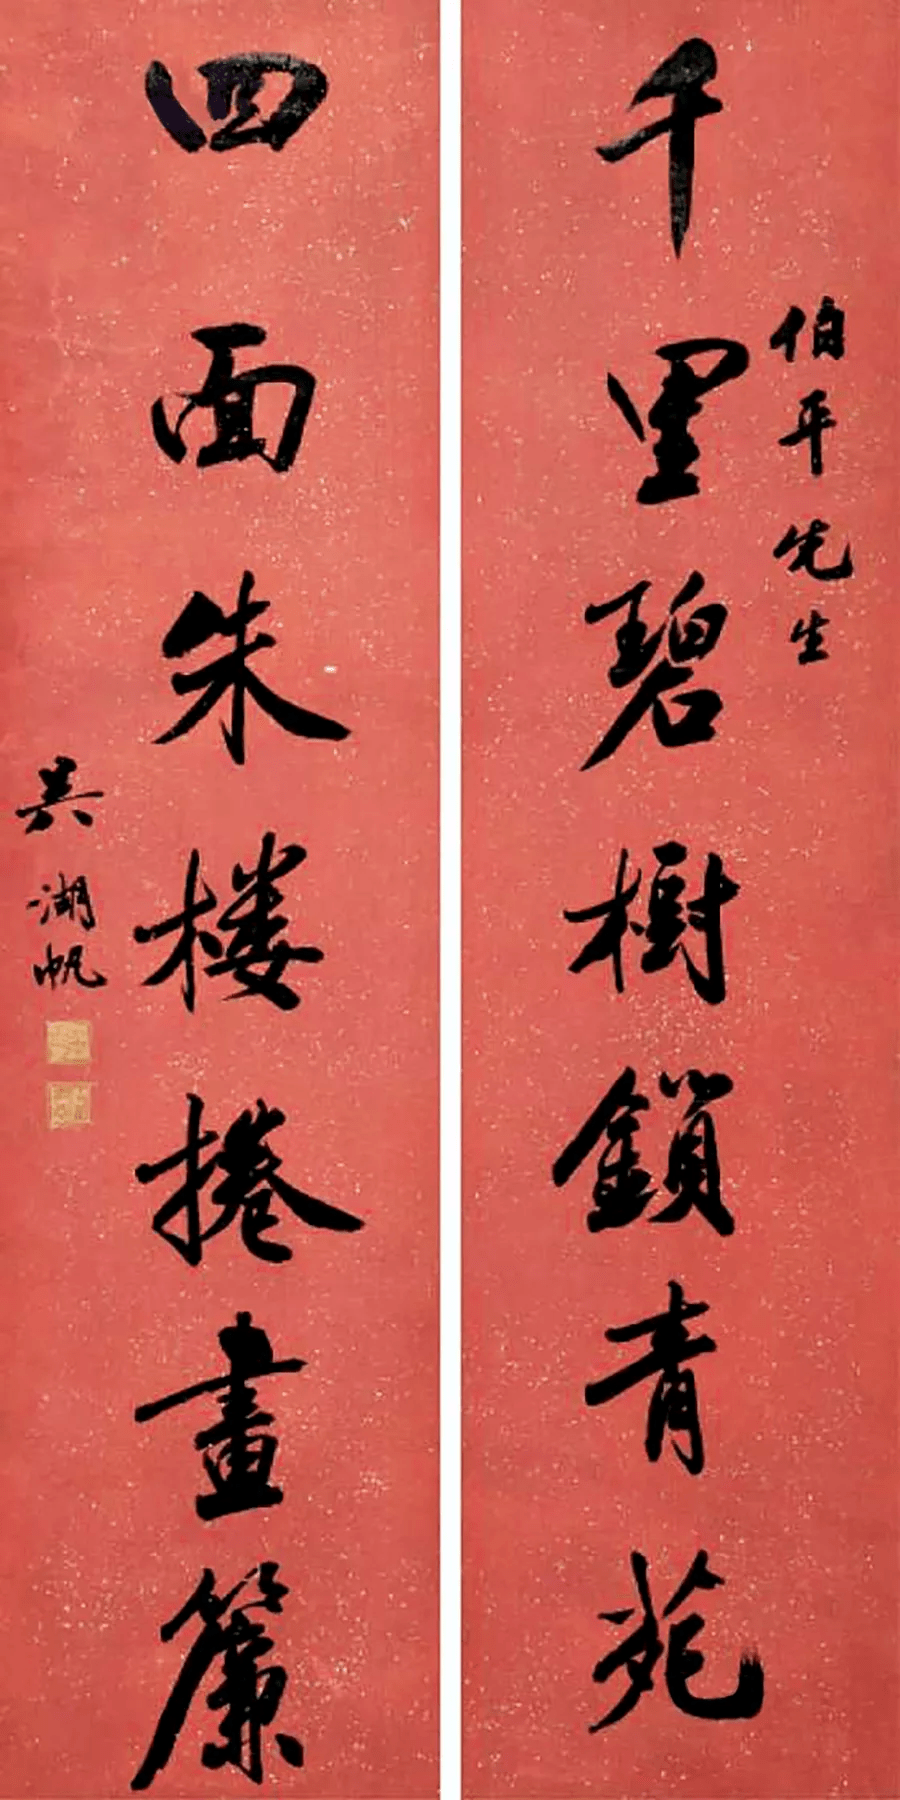 千里碧樹鎖青苑
伯平先生
四面朱樓捲畫簾
吳湖帆